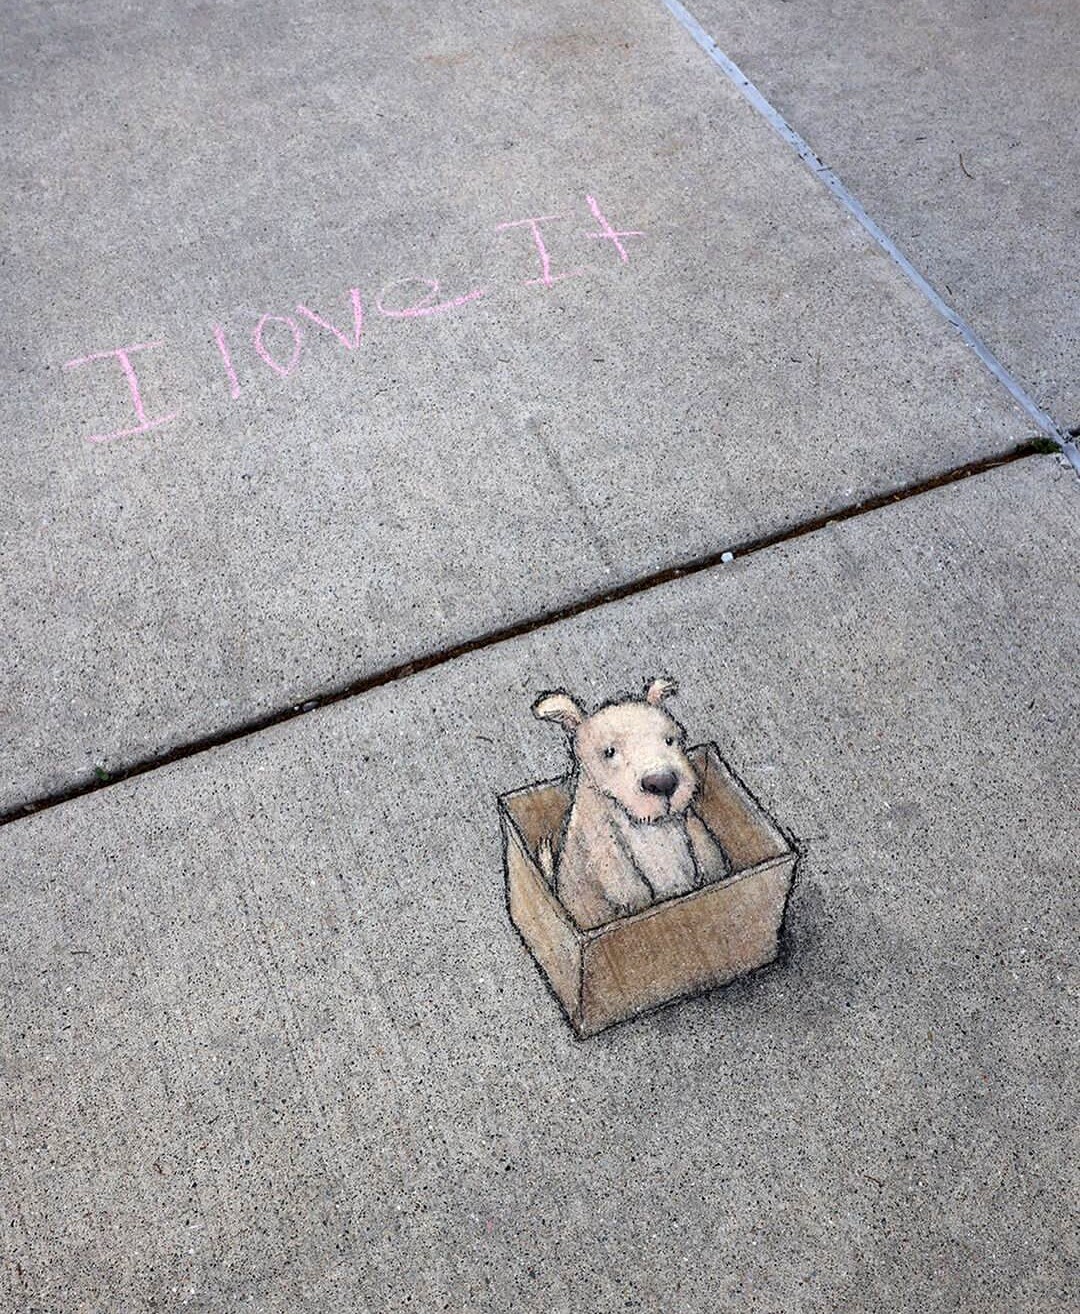 I love It